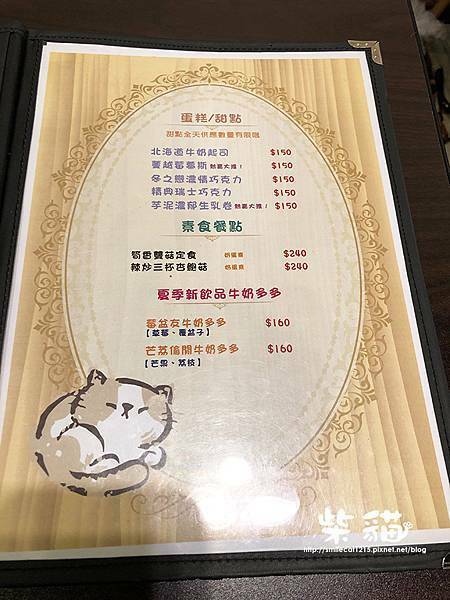 蛋糕/甜點
甜點全天供應數量有限哦
北海道牛奶起司 $150
蔓越莓慕斯 熱賣大推！ $150
冬之戀濃情巧克力 $150
精典瑞士巧克力 $150
芋泥濃郁生乳卷 熱賣大推！ $150
素食餐點
筍香雙菇定食 奶蛋素 $240
辣炒三杯杏鮑菇 奶蛋素 $240
夏季新飲品牛奶多多
莓盆友牛奶多多 $160
【草莓、覆盆子】
芒荔偷閒牛奶多多 $160
【芒果、荔枝】
柴貓
http://smilecat1215.pixnet.net/blog